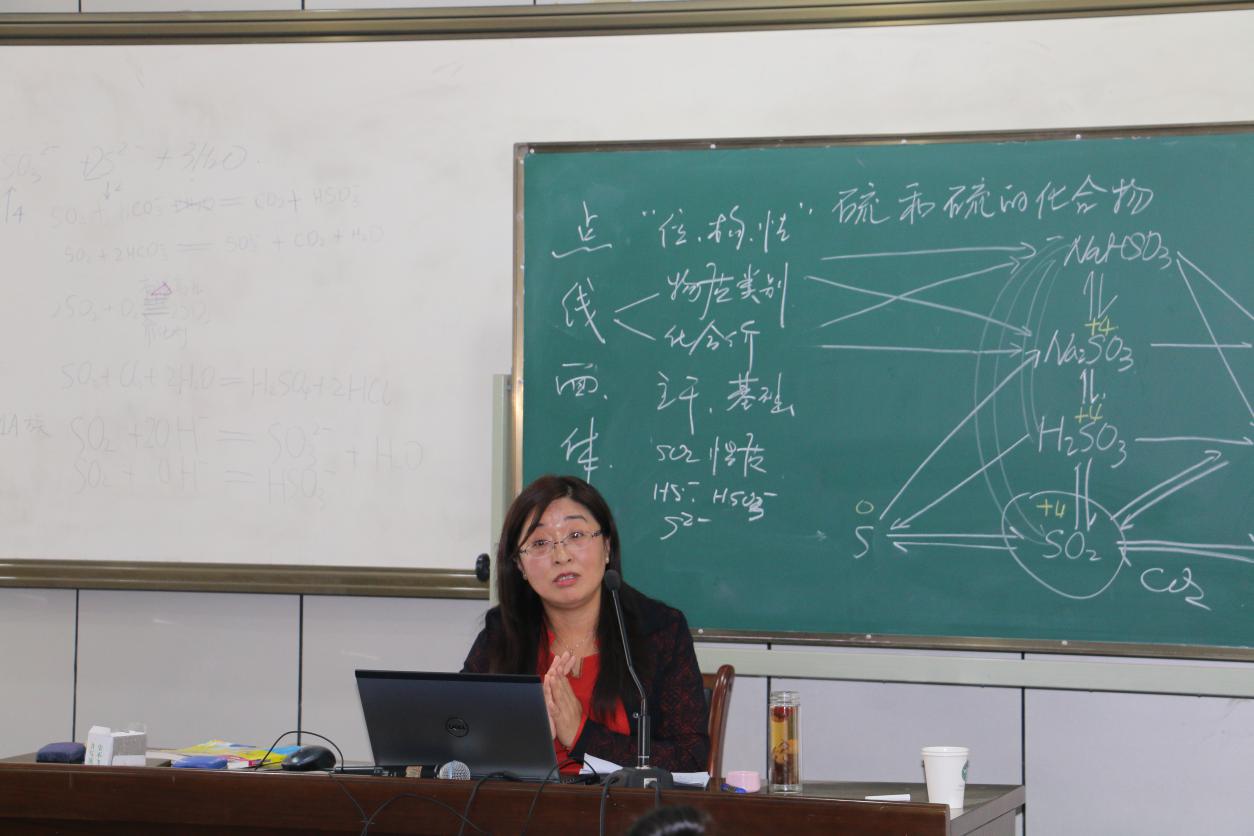 SO₃²⁻ + 2S²⁻ + 3H₂O
SO₂ + HCO₃⁻ = CO₂ + HSO₃⁻
SO₂ + 2HCO₃⁻ = SO₃²⁻ + CO₂ + H₂O
2SO₂ + O₂
SO₂ + Cl₂ + 2H₂O = H₂SO₄ + 2HCl
SO₂ + 2OH⁻ = SO₃²⁻ + H₂O
SO₂ + OH⁻ = HSO₃⁻
硫和硫的化合物
点 "位、构、性"
线 物质类别
化合价
面、主干、基础
体、SO₂性质
HS⁻ HSO₃⁻
S²⁻
NaHSO₃
+4
Na₂SO₃
+4
H₂SO₃
0
S
+4
SO₂
CO₂
DELL